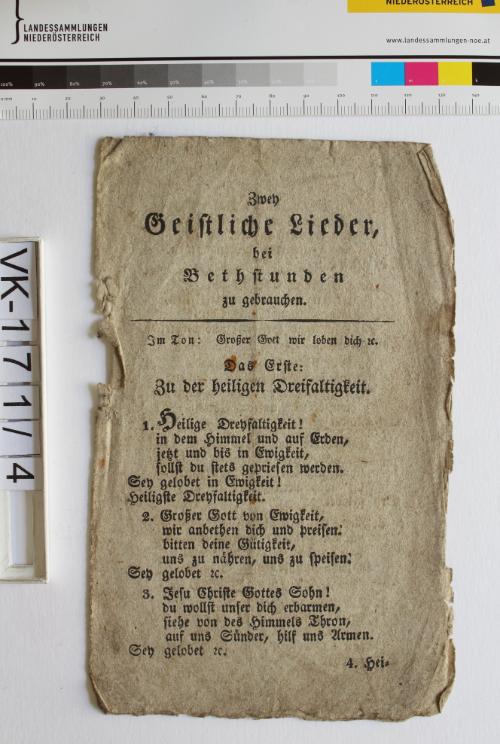 LANDESSAMMLUNGEN
NIEDERÖSTERREICH
NIEDERÖSTERREICH
www.landessammlungen-noe.at
VK-171/4
Zwey
Geistliche Lieder,
bei
Bethstunden
zu gebrauchen.
Im Ton: Großer Gott wir loben dich ꝛc.
Das Erste:
Zu der heiligen Dreifaltigkeit.
1. Heilige Dreyfaltigkeit!
in dem Himmel und auf Erden,
jetzt und bis in Ewigkeit,
sollst du stets gepriesen werden.
Sey gelobet in Ewigkeit!
Heiligste Dreyfaltigkeit.
2. Großer Gott von Ewigkeit,
wir anbethen dich und preisen:
bitten deine Gütigkeit,
uns zu nähren, uns zu speisen:
Sey gelobet ꝛc.
3. Jesu Christe Gottes Sohn!
du wollst unser dich erbarmen,
siehe von des Himmels Thron,
auf uns Sünder, hilf uns Armen.
Sey gelobet ꝛc.
4. Hei-